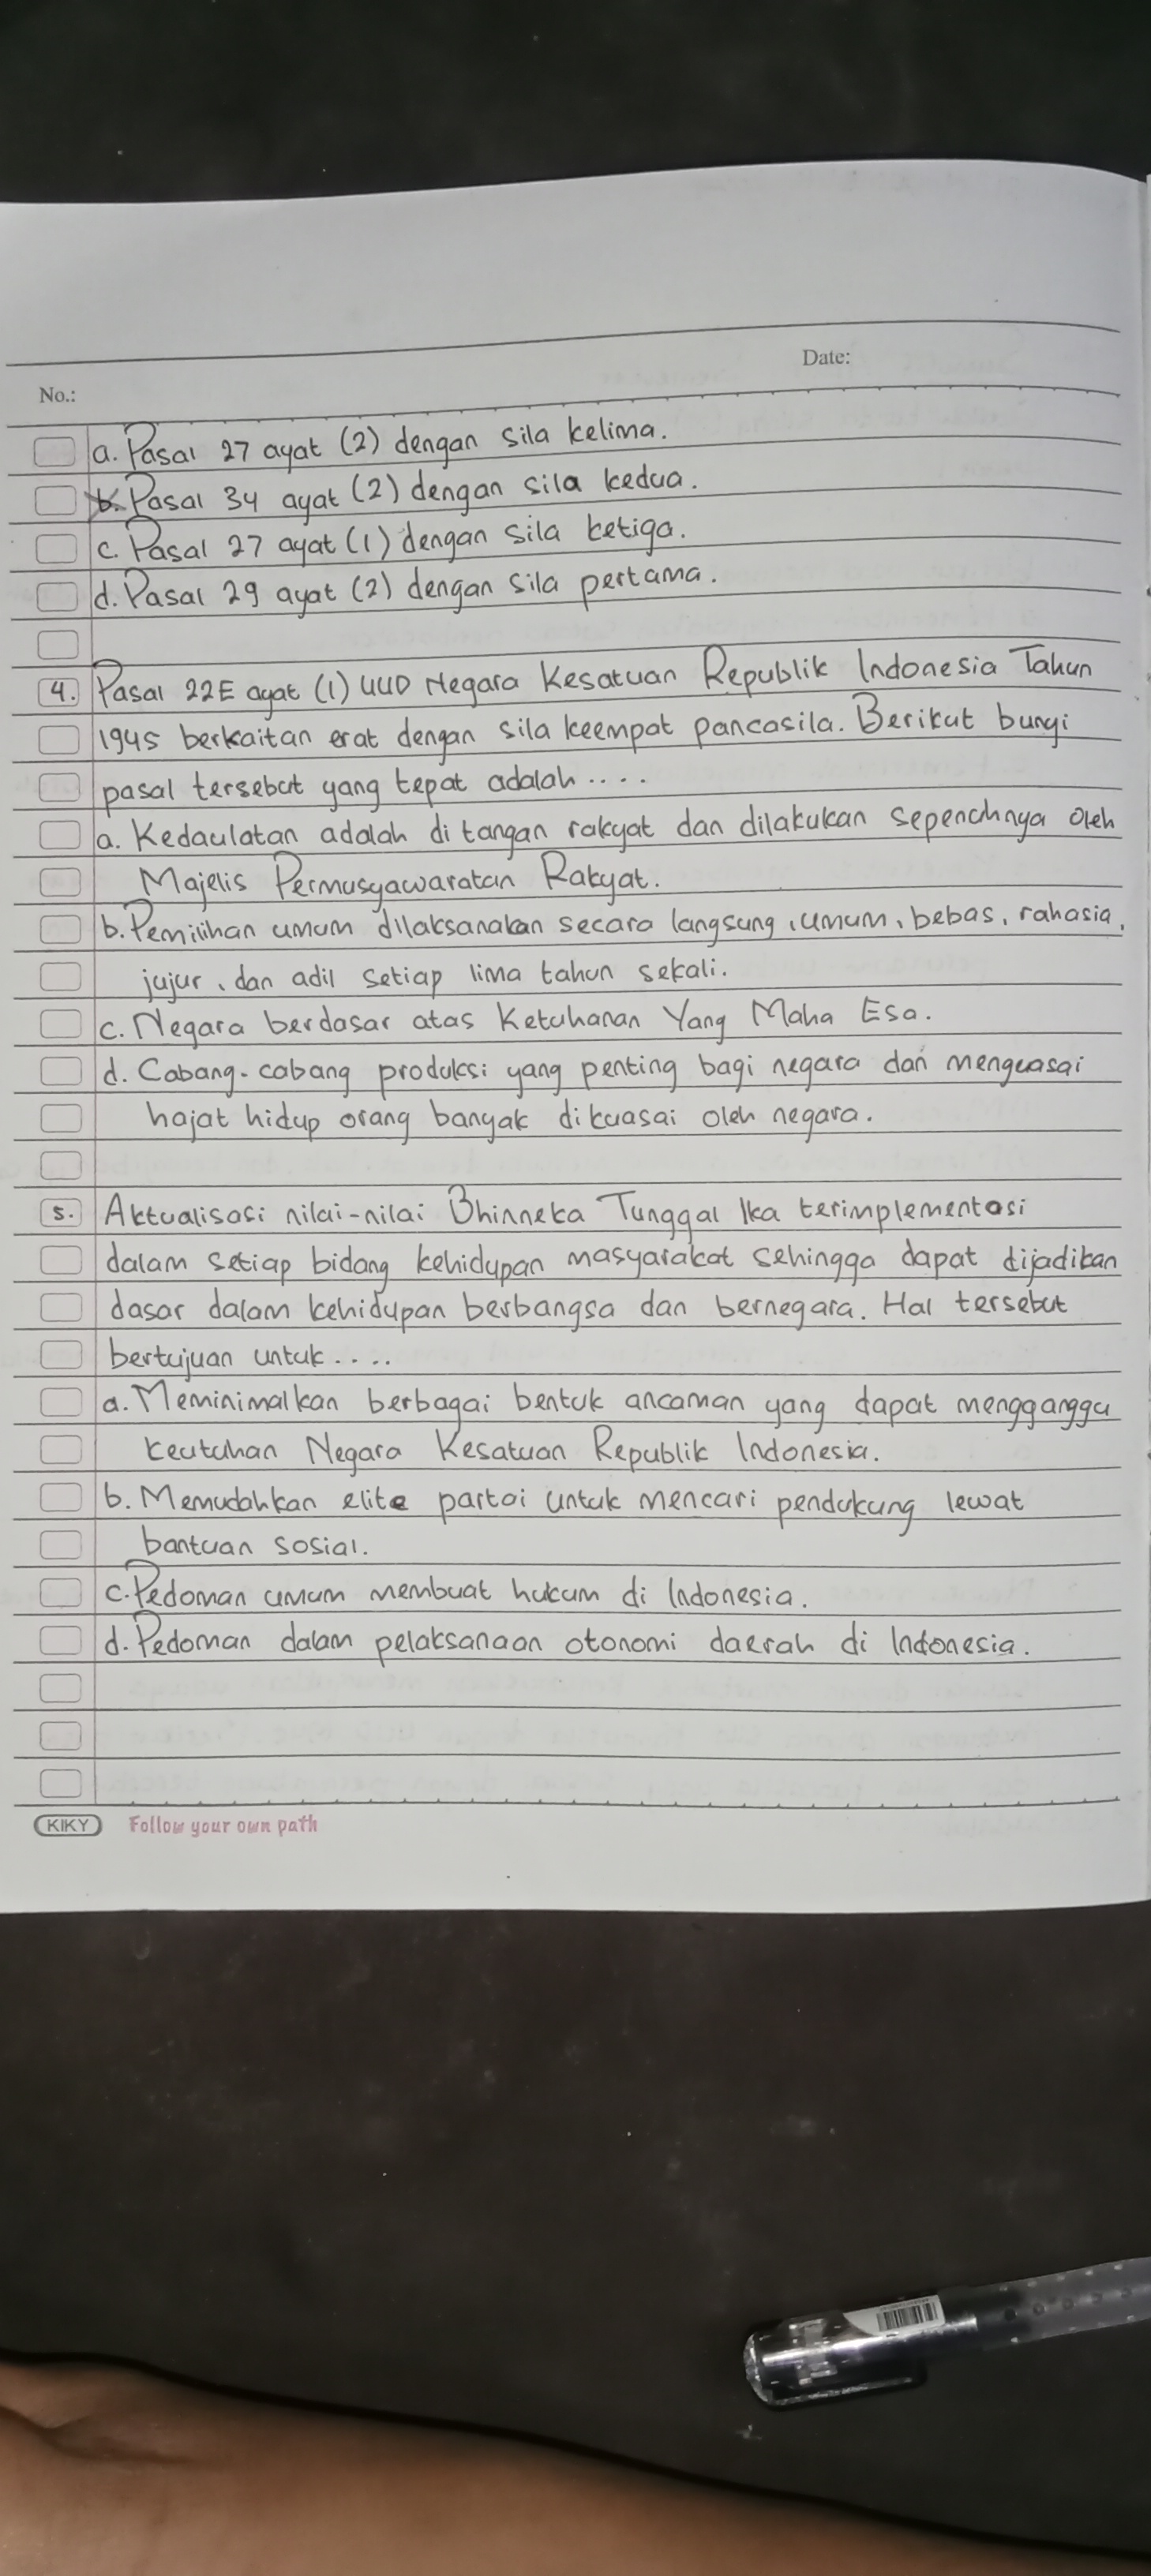 Date:
No.:
a. Pasal 27 ayat (2) dengan sila kelima.
b. Pasal 34 ayat (2) dengan sila kedua.
c. Pasal 27 ayat (1) dengan sila ketiga.
d. Pasal 29 ayat (2) dengan sila pertama.
4. Pasal 22E ayat (1) UUD Negara Kesatuan Republik Indonesia Tahun
1945 berkaitan erat dengan sila keempat pancasila. Berikut bunyi
pasal tersebut yang tepat adalah ....
a. Kedaulatan adalah di tangan rakyat dan dilakukan sepenuhnya oleh
Majelis Permusyawaratan Rakyat.
b. Pemilihan umum dilaksanakan secara langsung, umum, bebas, rahasia,
jujur, dan adil setiap lima tahun sekali.
c. Negara berdasar atas Ketuhanan Yang Maha Esa.
d. Cabang-cabang produksi yang penting bagi negara dan menguasai
hajat hidup orang banyak dikuasai oleh negara.
5. Aktualisasi nilai-nilai Bhinneka Tunggal Ika terimplementasi
dalam setiap bidang kehidupan masyarakat sehingga dapat dijadikan
dasar dalam kehidupan berbangsa dan bernegara. Hal tersebut
bertujuan untuk ....
a. Meminimalkan berbagai bentuk ancaman yang dapat mengganggu
keutuhan Negara Kesatuan Republik Indonesia.
b. Memudahkan elite partai untuk mencari pendukung lewat
bantuan sosial.
c. Pedoman umum membuat hukum di Indonesia.
d. Pedoman dalam pelaksanaan otonomi daerah di Indonesia.
KIKY Follow your own path